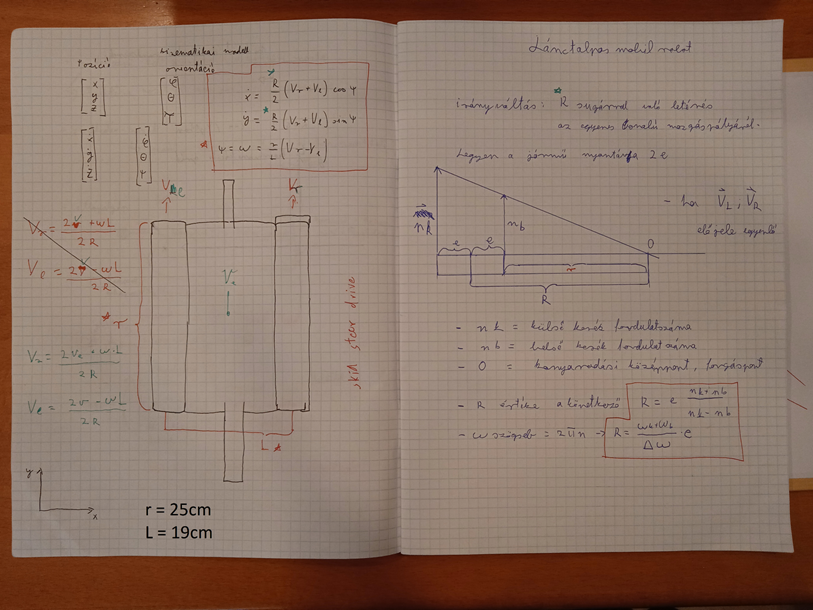 kinematikai modell
Pozíció
orientáció
x
y
z
φ
θ
ψ
ẋ
ẏ
ż
φ̇
θ̇
ψ̇
ẋ = R/2 (Vr + Vl) cos ψ
ẏ = R/2 (Vr + Vl) sin ψ
ψ = ω = r/L (Vr - Vl)
Vl
Vr
Vr = 2V + ωL / 2R
Ve = 2V - ωL / 2R
r
skid steer drive
Ve = 2v - ωL / 2R
L
y
x
r = 25cm
L = 19cm
Lánctalpas mobil robot
irányváltás: R sugárral való letérés
az egyenes vonalú mozgáspályáról.
Legyen a jármű nyomtávja 2e
nk
nb
e
e
r
R
O
- ha VL, VR
előjele egyenlő
- nk = külső kerék fordulatszáma
- nb = belső kerék fordulatszáma
- O = kanyarodási középpont, forgáspont
- R értéke a következő
R = e nk+nb / nk-nb
- ω szögseb = 2πn → R = ωk+ωb / Δω · e